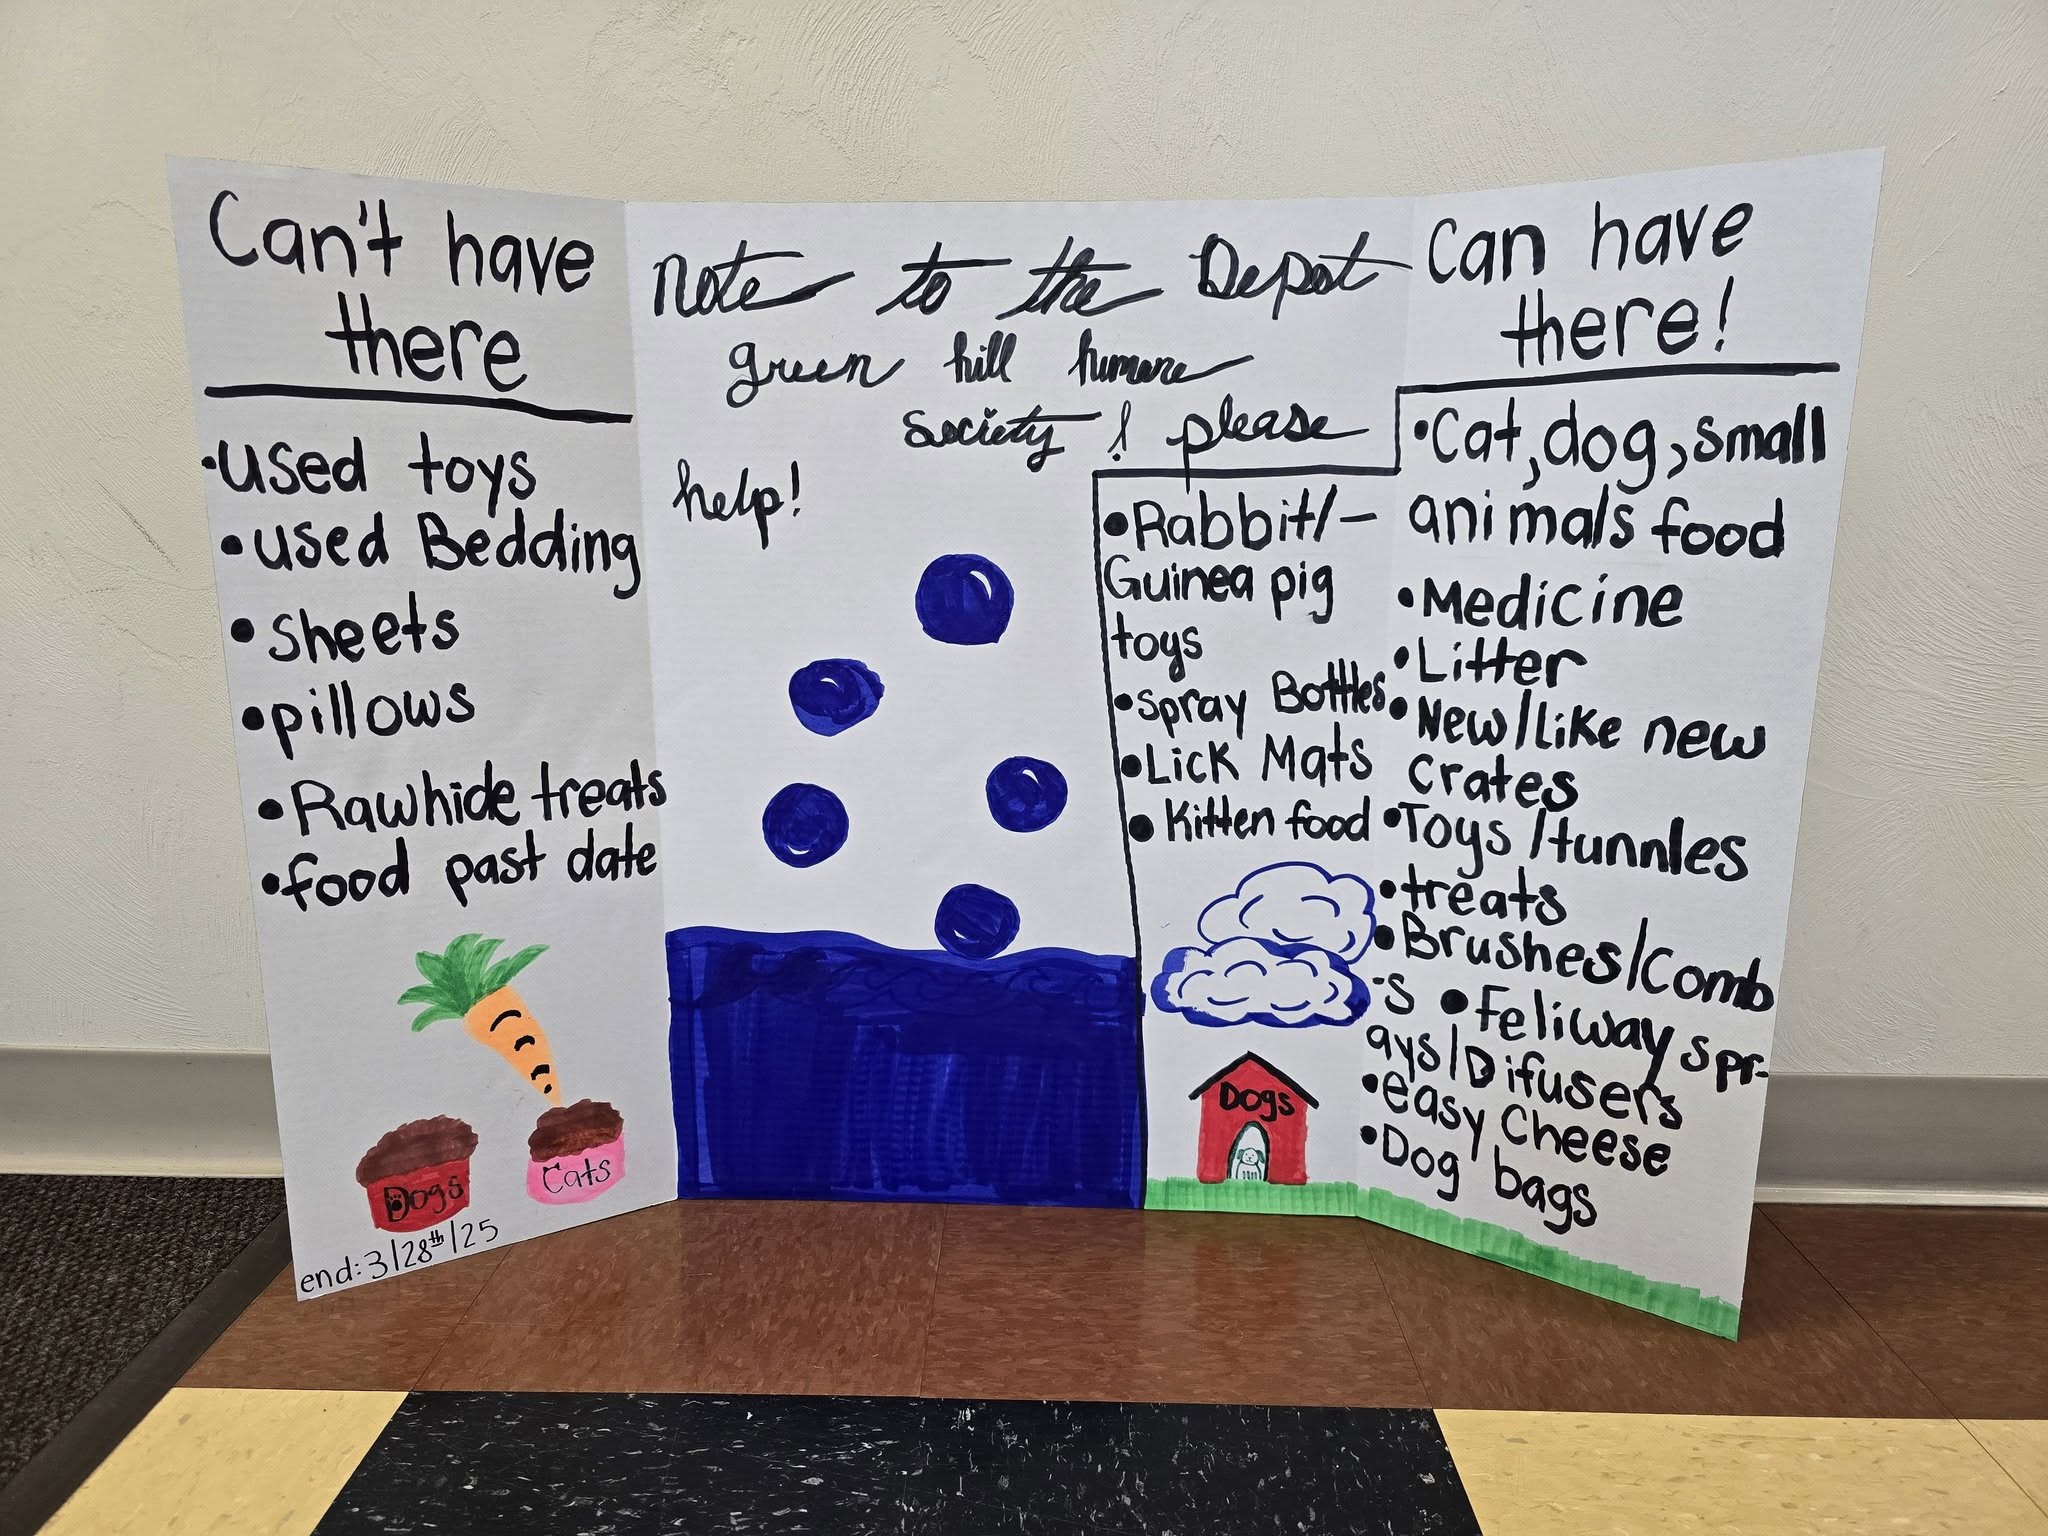 Can't have
there
•used toys
•used Bedding
•sheets
•pillows
•Rawhide treats
•food past date
Dogs
Cats
end: 3/28th/25
note to the Depot
green hill humane
society & please
help!
•Rabbit/-
Guinea pig
toys
•spray Bottles
•Lick Mats
•Kitten food
Dogs
Can have
there!
•Cat, dog, small
animals food
•Medicine
•Litter
•New/like new
crates
•Toys/tunnles
•treats
•Brushes/Comb
-s •Feliway spr-
ays/Difusers
•easy Cheese
•Dog bags